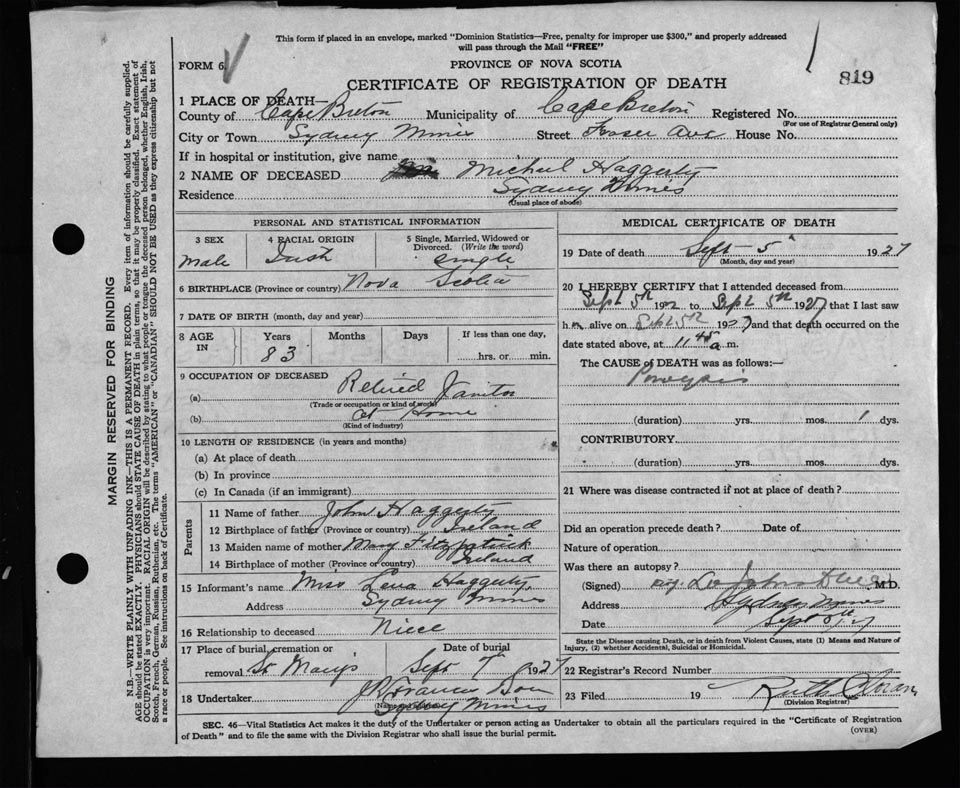 This form if placed in an envelope, marked "Dominion Statistics—Free, penalty for improper use $300," and properly addressed
will pass through the Mail "FREE"
FORM 6.
PROVINCE OF NOVA SCOTIA
819
CERTIFICATE OF REGISTRATION OF DEATH
1 PLACE OF DEATH—
County of Cape Breton Municipality of Cape Breton Registered No.
(For use of Registrar General only)
City or Town Sydney Mines Street Fraser Ave House No.
If in hospital or institution, give name
2 NAME OF DECEASED Michael Haggerty
Residence Sydney Mines
(Usual place of abode)
PERSONAL AND STATISTICAL INFORMATION
3 SEX Male
4 RACIAL ORIGIN Irish
5 Single, Married, Widowed or Divorced. (Write the word) Single
6 BIRTHPLACE (Province or country) Nova Scotia
7 DATE OF BIRTH (month, day and year)
8 AGE IN Years 83 Months Days If less than one day, hrs. or min.
9 OCCUPATION OF DECEASED
(a) Retired Janitor
(Trade or occupation or kind of work)
(b) At Home
(Kind of industry)
10 LENGTH OF RESIDENCE (in years and months)
(a) At place of death
(b) In province
(c) In Canada (if an immigrant)
Parents
11 Name of father John Haggerty
12 Birthplace of father (Province or country) Ireland
13 Maiden name of mother Mary Fitzpatrick
14 Birthplace of mother (Province or country) Ireland
15 Informant's name Miss Lena Haggerty
Address Sydney Mines
16 Relationship to deceased Niece
17 Place of burial, cremation or removal St Mary's
Date of burial Sept 7th 1927
18 Undertaker Francis Son
Sydney Mines
MEDICAL CERTIFICATE OF DEATH
19 Date of death Sept 5 1927
(Month, day and year)
20 I HEREBY CERTIFY that I attended deceased from
Sept 5th 192 to Sept 5th 1927 that I last saw
h alive on Sept 5th 1927 and that death occurred on
date stated above, at 11 45 a.m.
The CAUSE OF DEATH was as follows:—
(duration) yrs. mos. 1 dys.
CONTRIBUTORY
(duration) yrs. mos. dys.
21 Where was disease contracted if not at place of death?
Did an operation precede death? Date of
Nature of operation
Was there an autopsy?
(Signed) M.D.
Address Sydney Mines
Date Sept
State the Disease causing Death, or in death from Violent Causes, state (1) Means and Nature of
Injury, (2) whether Accidental, Suicidal or Homicidal.
22 Registrar's Record Number
23 Filed 19 Ruth
(Division Registrar)
SEC. 46—Vital Statistics Act makes it the duty of the Undertaker or person acting as Undertaker to obtain all the particulars required in the "Certificate of Registration
of Death" and to file the same with the Division Registrar who shall issue the burial permit.
(OVER)
MARGIN RESERVED FOR BINDING
N.B.—WRITE PLAINLY WITH UNFADING INK—THIS IS A PERMANENT RECORD. Every item of information should be carefully supplied.
AGE should be stated EXACTLY. PHYSICIANS should STATE CAUSE OF DEATH in plain terms, so that it may be properly classified. Exact statement of
OCCUPATION is very important. RACIAL ORIGIN will be described by stating to what people or tongue the deceased person belonged, whether English, Irish,
Scotch, French, German, Russian, Ruthenian, etc. The terms "AMERICAN" or "CANADIAN" SHOULD NOT BE USED as they express citizenship but not
a race or people. See instructions on back of Certificate.